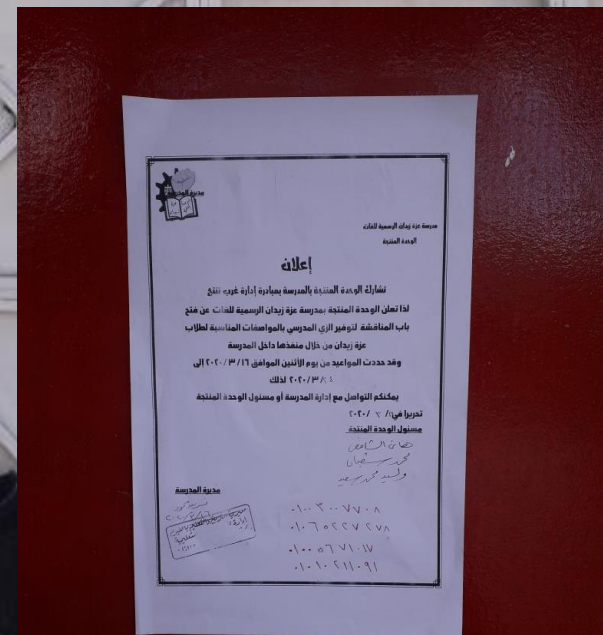 مديرة المدرسة
مدرسة عزة زيدان الرسمية للغات
الوحدة المنتجة
إعلان
تشارك الوحدة المنتجة بالمدرسة بمبادرة إدارة غرب تنتج
لذا تعلن الوحدة المنتجة بمدرسة عزة زيدان الرسمية للغات عن فتح
باب المناقشة لتوفير الزي المدرسي بالمواصفات المناسبة لطلاب
عزة زيدان من خلال منفذها داخل المدرسة
وقد حددت المواعيد من يوم الأثنين الموافق ٢٠٢٠/٣/١٦ إلى
٢٠٢٠/٣/ لذلك
يمكنكم التواصل مع إدارة المدرسة أو مسئول الوحدة المنتجة
تحريرا في
مسئول الوحدة المنتجة
محمد
وليد محمد سعيد
مديرة المدرسة
٠١٠٠٣٠٠٧٧٠٨
٠١٠٦٥٢٢٧٢٧٨
٠١٠٠٥٦٧١٠١٧
٠١٠١٠٢١١٠٩١